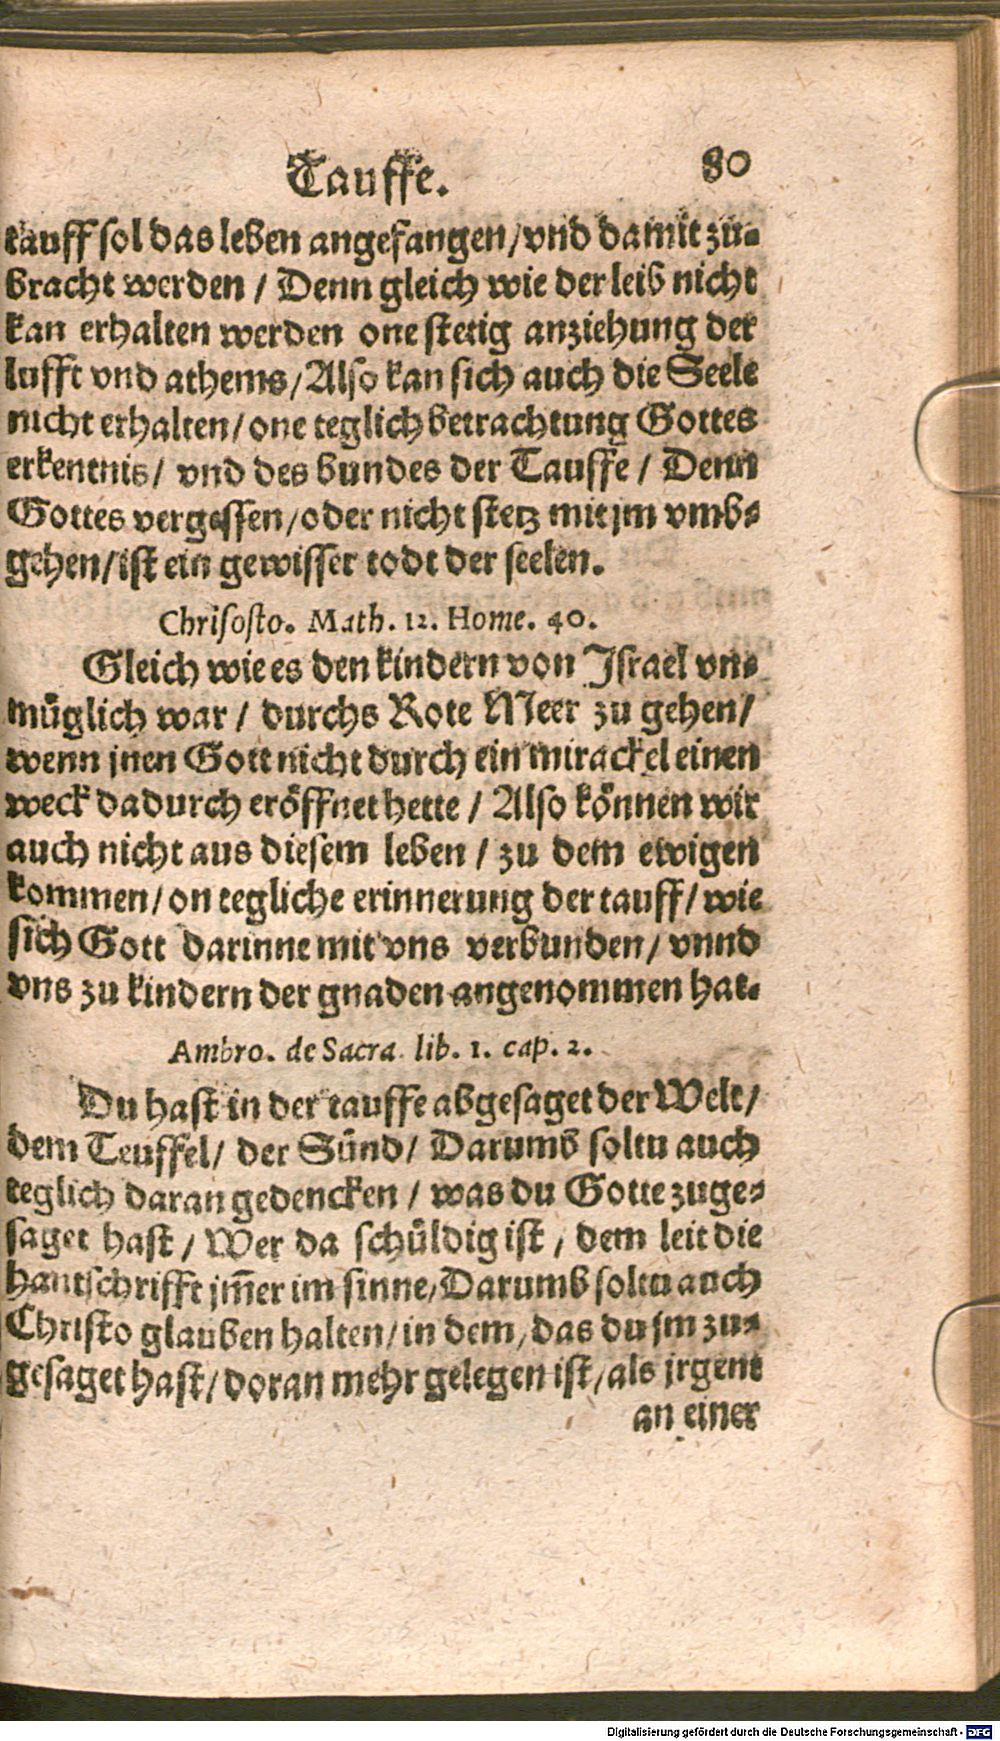 Tauffe. 80
tauff sol das leben angefangen/vnd damit zu-
bracht werden / Denn gleich wie der leib nicht
kan erhalten werden one stetig anziehung der
lufft vnd athems/Also kan sich auch die Seele
nicht erhalten/one teglich betrachtung Gottes
erkentnis/ vnd des bundes der Tauffe / Denn
Gottes vergessen/oder nicht stetz mit jm vmb-
gehen/ist ein gewisser todt der seelen.
Chrisosto. Math. 12. Home. 40.
Gleich wie es den kindern von Israel vn-
müglich war / durchs Rote Meer zu gehen/
wenn jnen Gott nicht durch ein mirackel einen
weck dadurch eröffnet hette / Also können wir
auch nicht aus diesem leben / zu dem ewigen
kommen/on tegliche erinnerung der tauff/wie
sich Gott darinne mit vns verbunden/ vnnd
vns zu kindern der gnaden angenommen hat.
Ambro. de Sacra. lib. 1. cap. 2.
Du hast in der tauffe abgesaget der Welt/
dem Teuffel/ der Sünd/ Darumb soltu auch
teglich daran gedencken / was du Gotte zuge-
saget hast / Wer da schüldig ist / dem leit die
hantschrifft jm̄er im sinne/Darumb soltu auch
Christo glauben halten/in dem/das du jm zu-
gesaget hast/doran mehr gelegen ist/als jrgent
an einer
Digitalisierung gefördert durch die Deutsche Forschungsgemeinschaft - DFG